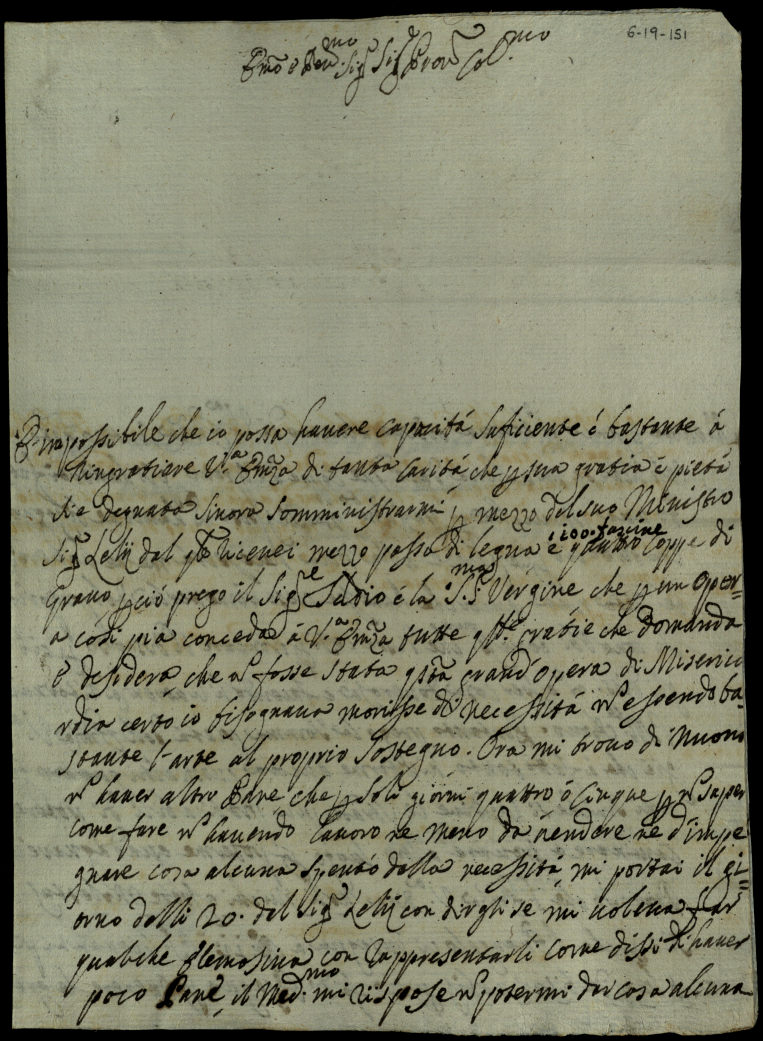 6-19-151
Em̃o e Rev.mo Sig.r Sig.r Pron Col.mo
È impossibile che io possa havere capacità suficiente è bastante à
ringratiare V.a Em̃za di tanta Carità che p sua gratia è pietà
si è degnata sinora somministrarmi p mezzo del suo Ministro
Sig.r Lelij dal mezzo passo di legna è 100. fascine quattro Coppe di
grano pciò prego il Sig.re Iddio è la S.S.ma Vergine che p un oper=
a così pia conceda à V.a Em̃za tutte qste gratie che domanda
è desidera, che se n̄ fosse stata qsta grand'opera di Miserico
rdia certo io bisognava morisse di necessità n̄ essendo ba=
stante l'arte al proprio sostegno. Ora mi trovo di nuovo
n̄ haver altro Pane che p soli giorni quattro ò cinque p n̄ saper
come fare n̄ havendo lavoro ne meno da vendere nè d'impe
gnare cosa alcuna spento dalla necessità mi portai il gi=
orno delli 20. dal Sig.r Lelij con dirgli se mi voleva far
qualche Elemosina con rappresentarli come dissi di haver
poco Pane, il Med.mo mi rispose n̄ potermi dar cosa alcuna